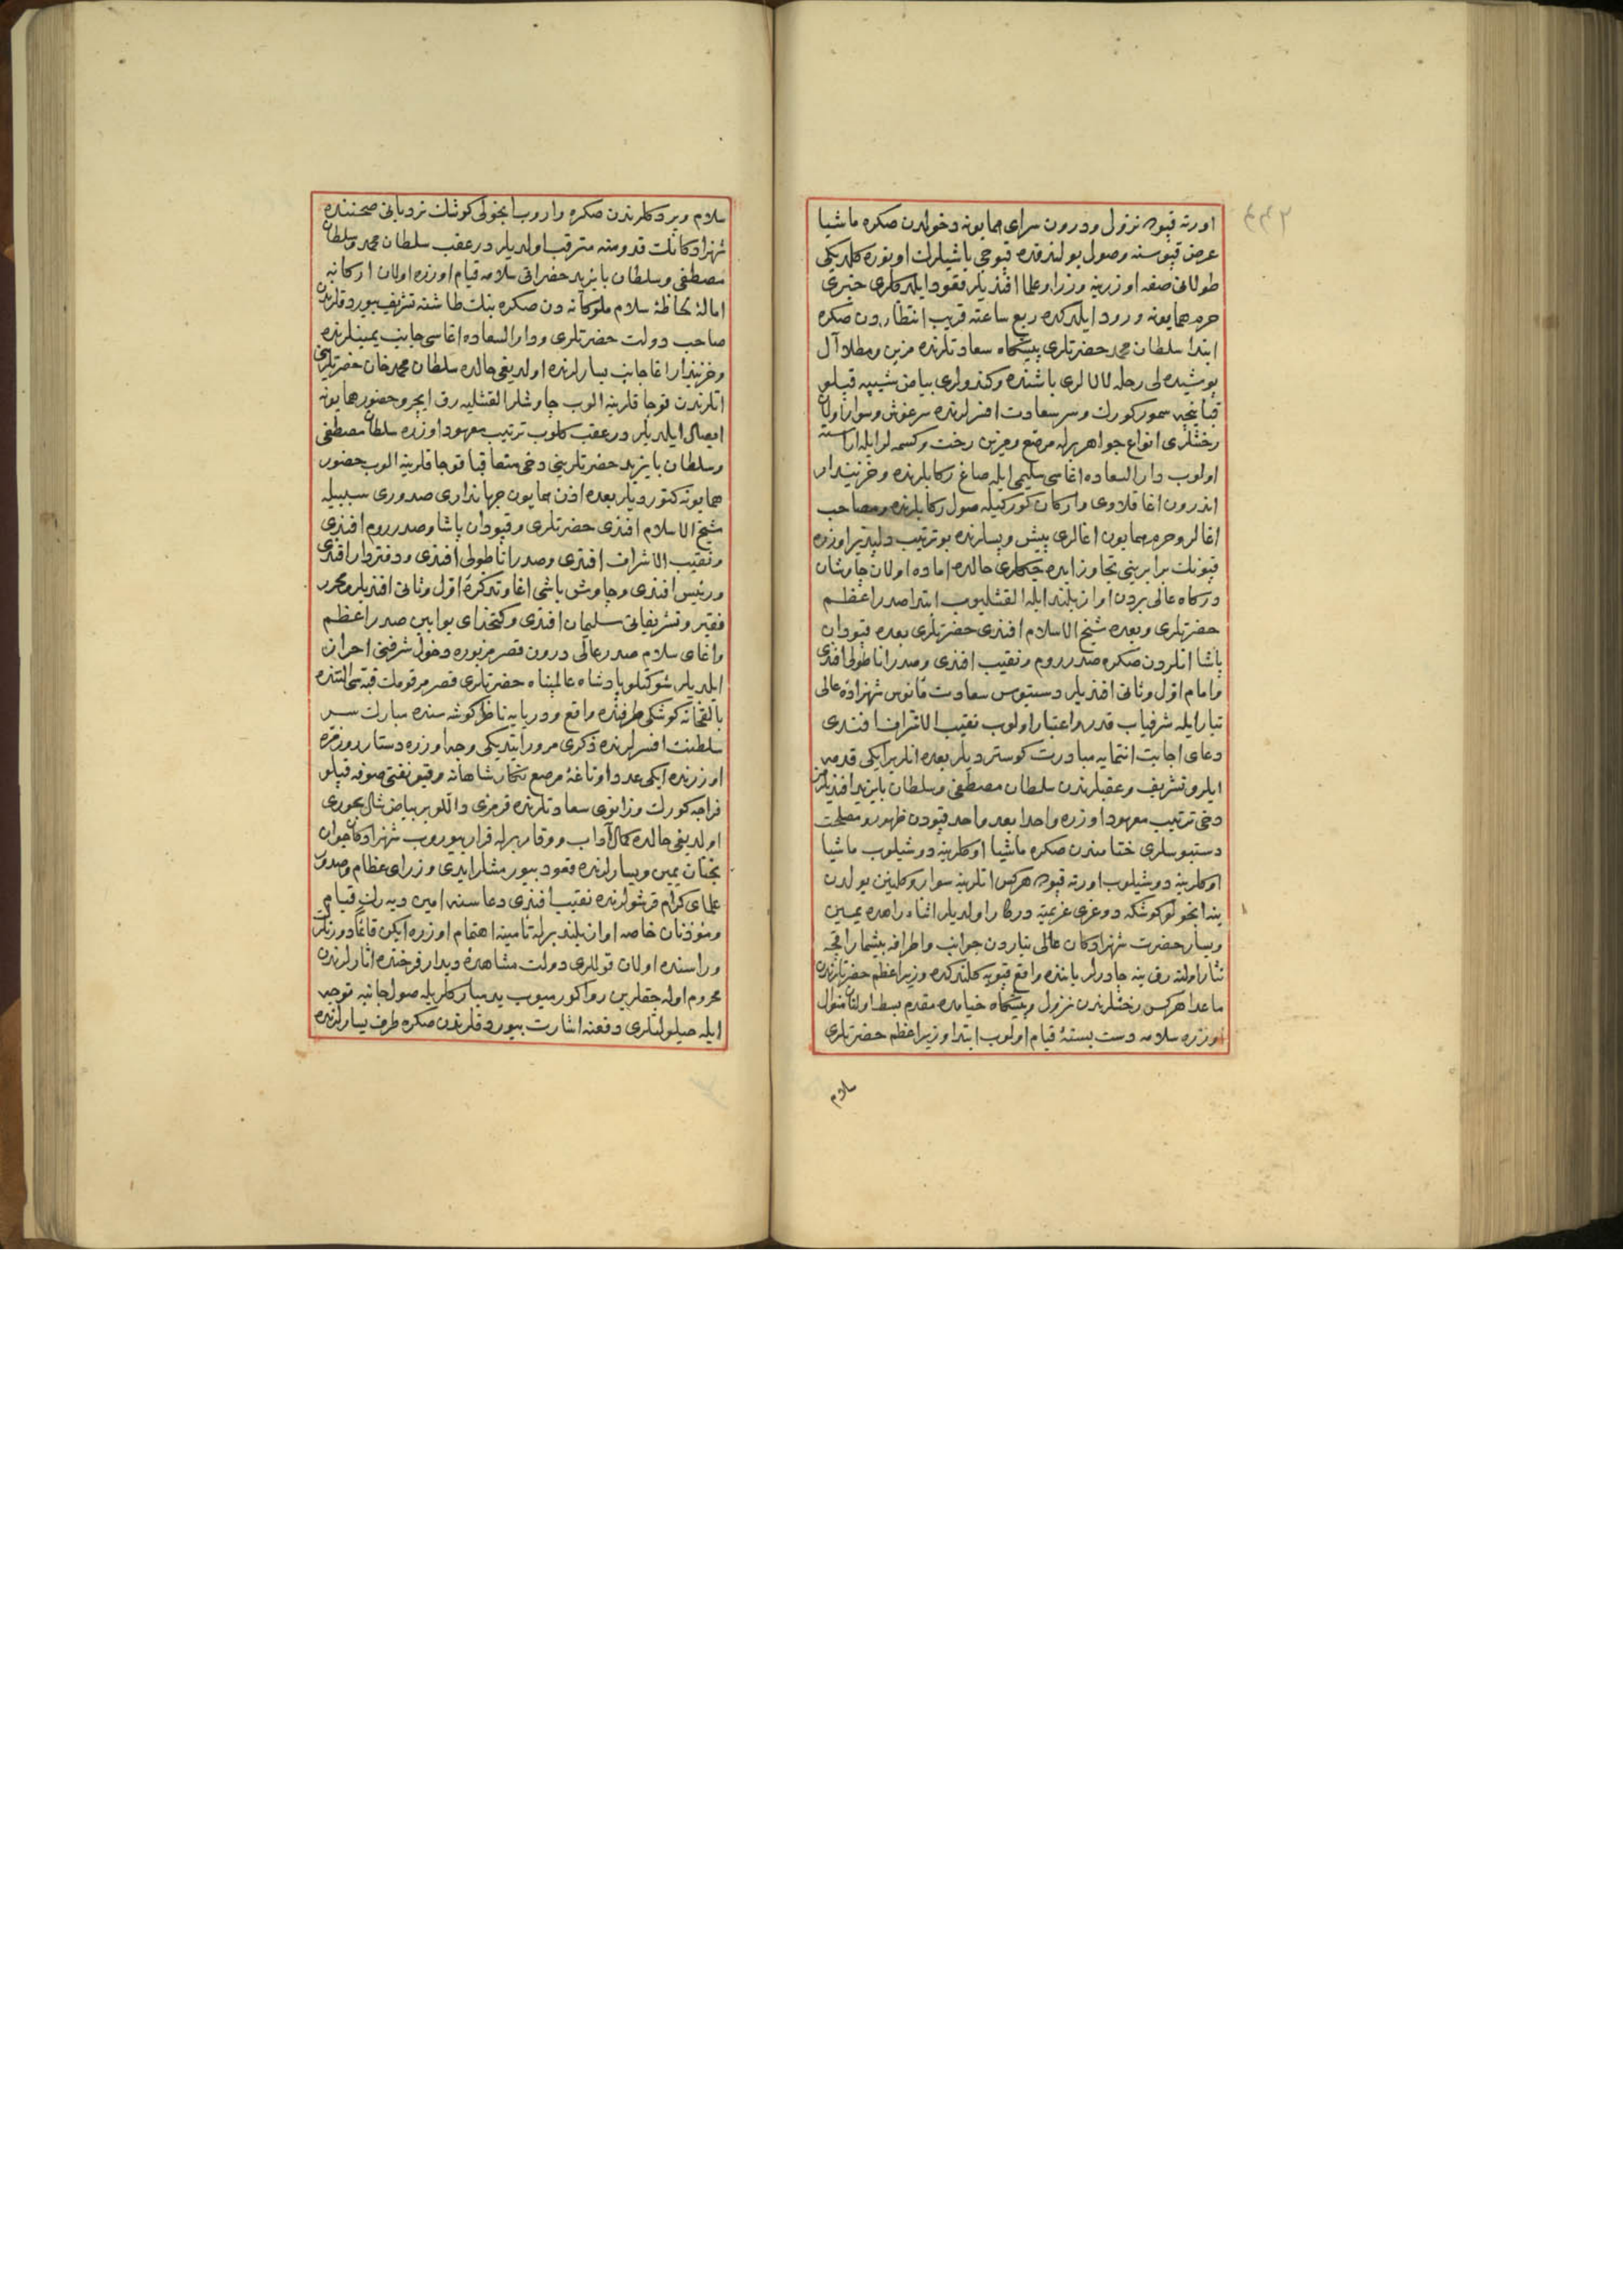 ٤٤٢
اورته قپوده نزول ودرون سرای همایونه دخولدن صکره ماشیا
عرض قپوسنه وصول بولندقده قپوجی باشیلرك اوتوره کلدیکی
طولانی صفه اوزرینه وزرا وعلما افندیلر قعود ایلدکلری خبری
حرم همایونه ورود ایلدکده ربع ساعته قریب انتظاردن صکره
ابتدا سلطان محمد حضرتلری پیشگاه سعادتلرنده مزین ومطلا آل
پوشیده لی رحله لالالری باشنده وکندولری بیاض شیبه قپلو
قپانیچه سمور کورك وسر سعادت افسرلرنده سرغوش وسوار اولان
رخشلری انواع جواهر برله مرصع ومزین رخت وکسمه لر ایله اراسته
اولوب دار السعاده اغاسی سلیمی ایله صاغ رکابلرنده وخزینه دار
اندرون اغا قلاوی وارکان کورکیله صول رکابلرنده ومصاحب
اغالر وحرم همایون اغالری پیش وپسلرنده بو ترتیب دلپذیر اوزره
قپونك برابرینی تجاوز ایده جکلری حالده اماده اولان چاوشان
درکاه عالی بردن اواز بلند ایله القشلیوب ابتدا صدر اعظم
حضرتلری وبعده شیخ الاسلام افندی حضرتلری بعده قپودان
پاشا انلردن صکره صدر روم ونقیب افندی وصدر اناطولی افندی
وامام اول وثانی افندیلر دستبوس سعادت مأنوس شهزاده عالی
تبار ایله شرفیاب قدر واعتبار اولوب نقیب الاشراف افندی
دعای اجابت انتمایه مبادرت کوستردیلر بعده انلر بر ایکی قدمه
ایلرو تشریف وعقبلرندن سلطان مصطفی وسلطان بایزید افندیلرك
دخی ترتیب معهود اوزره واحدا بعد واحد قپودن ظهور ومصلحت
دستبوسلری ختامندن صکره ماشیا اوکلرینه دوشیلوب ماشیا
اوکلرینه دوشیلوب اورته قپوده هرکس اتلرینه سوار وکلینن یولدن
ینه انجولو کوشکه دوغری عزیمته درکار اولدیلر اثناء راهده یمین
ویسار حضرت شهزادکان عالی تباردن جوانب واطرافه بیشمار اقچه
نثار اولنه رق ینه چادرلر یاننده واقع قپویه کلندکده وزیر اعظم حضرتلرندن
ماعدا هرکس رخشلرندن نزول وپیشگاه خیامده مقدم بسط اولنان منوال
اوزره سلامه دست بسته قیام اولوب ابتدا وزیر اعظم حضرتلری
سلام
سلام ویردکلرندن صکره واروب انجولی کوشك نردبانی صحننده
شهزادکانك قدومنه مترقب اولدیلر درعقب سلطان محمد وسلطان
مصطفی وسلطان بایزید حضراتی سلامه قیام اوزره اولان ارکانه
امالهٔ لحاظهٔ سلام ملوکانه دن صکره بنك طاشنه تشریف بیوردقلرندن
صاحب دولت حضرتلری ودار السعاده اغاسی جانب یمینلرنده
وخزینه دار اغا جانب یسارلرنده اولدیغی حالده سلطان محمد خان حضرتلرینی
اتلرندن قوجاقلرینه الوب چاوشلر القشلیه رق ایچرو حضور همایونه
ایصال ایلدیلر درعقب کلوب ترتیب معهود اوزره سلطان مصطفی
وسلطان بایزید حضرتلرینی دخی متعاقبا قوجاقلرینه الوب حضور
همایونه کتوردیلر بعده اذن همایون جهانداری صدوری سببیله
شیخ الاسلام افندی حضرتلری وقپودان پاشا وصدر روم افندی
ونقیب الاشراف افندی وصدر اناطولی افندی ودفتردار افندی
ورئیس افندی وچاوش باشی اغا وتذکرهٔ اول وثانی افندیلر ومحرر
فقیر وتشریفاتی سلیمان افندی وکتخدای بوابین صدر اعظم
واغای سلام صدر عالی درون قصر مزبوره دخول شرفنی احراز
ایلدیلر شوکتلو پادشاه عالمپناه حضرتلری قصر مرقومك قبه سی التنده
بالقخانه کوشکی طرفنده واقع ودریایه ناظر کوشه سنده مبارك سر
سلطنت افسرلرنده ذکری مرور ایتدیکی وجه اوزره دستار روزمره
اوزرنده ایکی عدد اوتاغهٔ مرصع تنگار شاهانه وقیو نفتی صوفه قپلو
فراجه کورك وزانوی سعادتلرنده قرمزی دالّلو بر بیاض شال بحوری
اولدیغی حالده کمال آداب ووقار برله قرار بیوروب شهزادکان جوان
بختان یمین ویسارلرنده قعود بیورمشلر ایدی وزرای عظام وصدور
علمای کرام قرشولرنده نقیب افندی دعاسنه امین دیه رك قیام
ومؤذنان خاصه اواز بلند برله تأمینه اهتمام اوزره ایکن قائما دورنلرك
وراسنده اولان قوللری دولت مشاهدهٔ دیدار فرخنده اثارلرندن
محروم اوله جقلرین روا کورمیوب ید مبارکلریله صول جانبه توجه
ایله حیلولتلری دفعنه اشارت بیوردقلرندن صکره طرف یسارلرنده